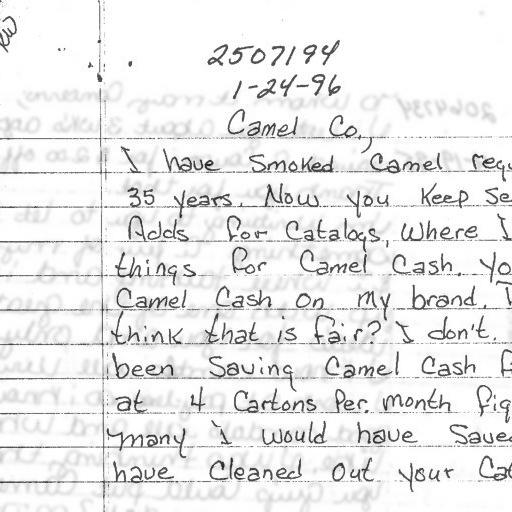 2507194
1-24-96
Camel Co.,
I have Smoked Camel
35 years. Now you Keep
Adds for Catalogs, Where I
things for Camel Cash.
Camel Cash on my brand.
think that is fair? I don't.
been Saving Camel Cash
at 4 Cartons Per. month
many I would have
have Cleaned Out your